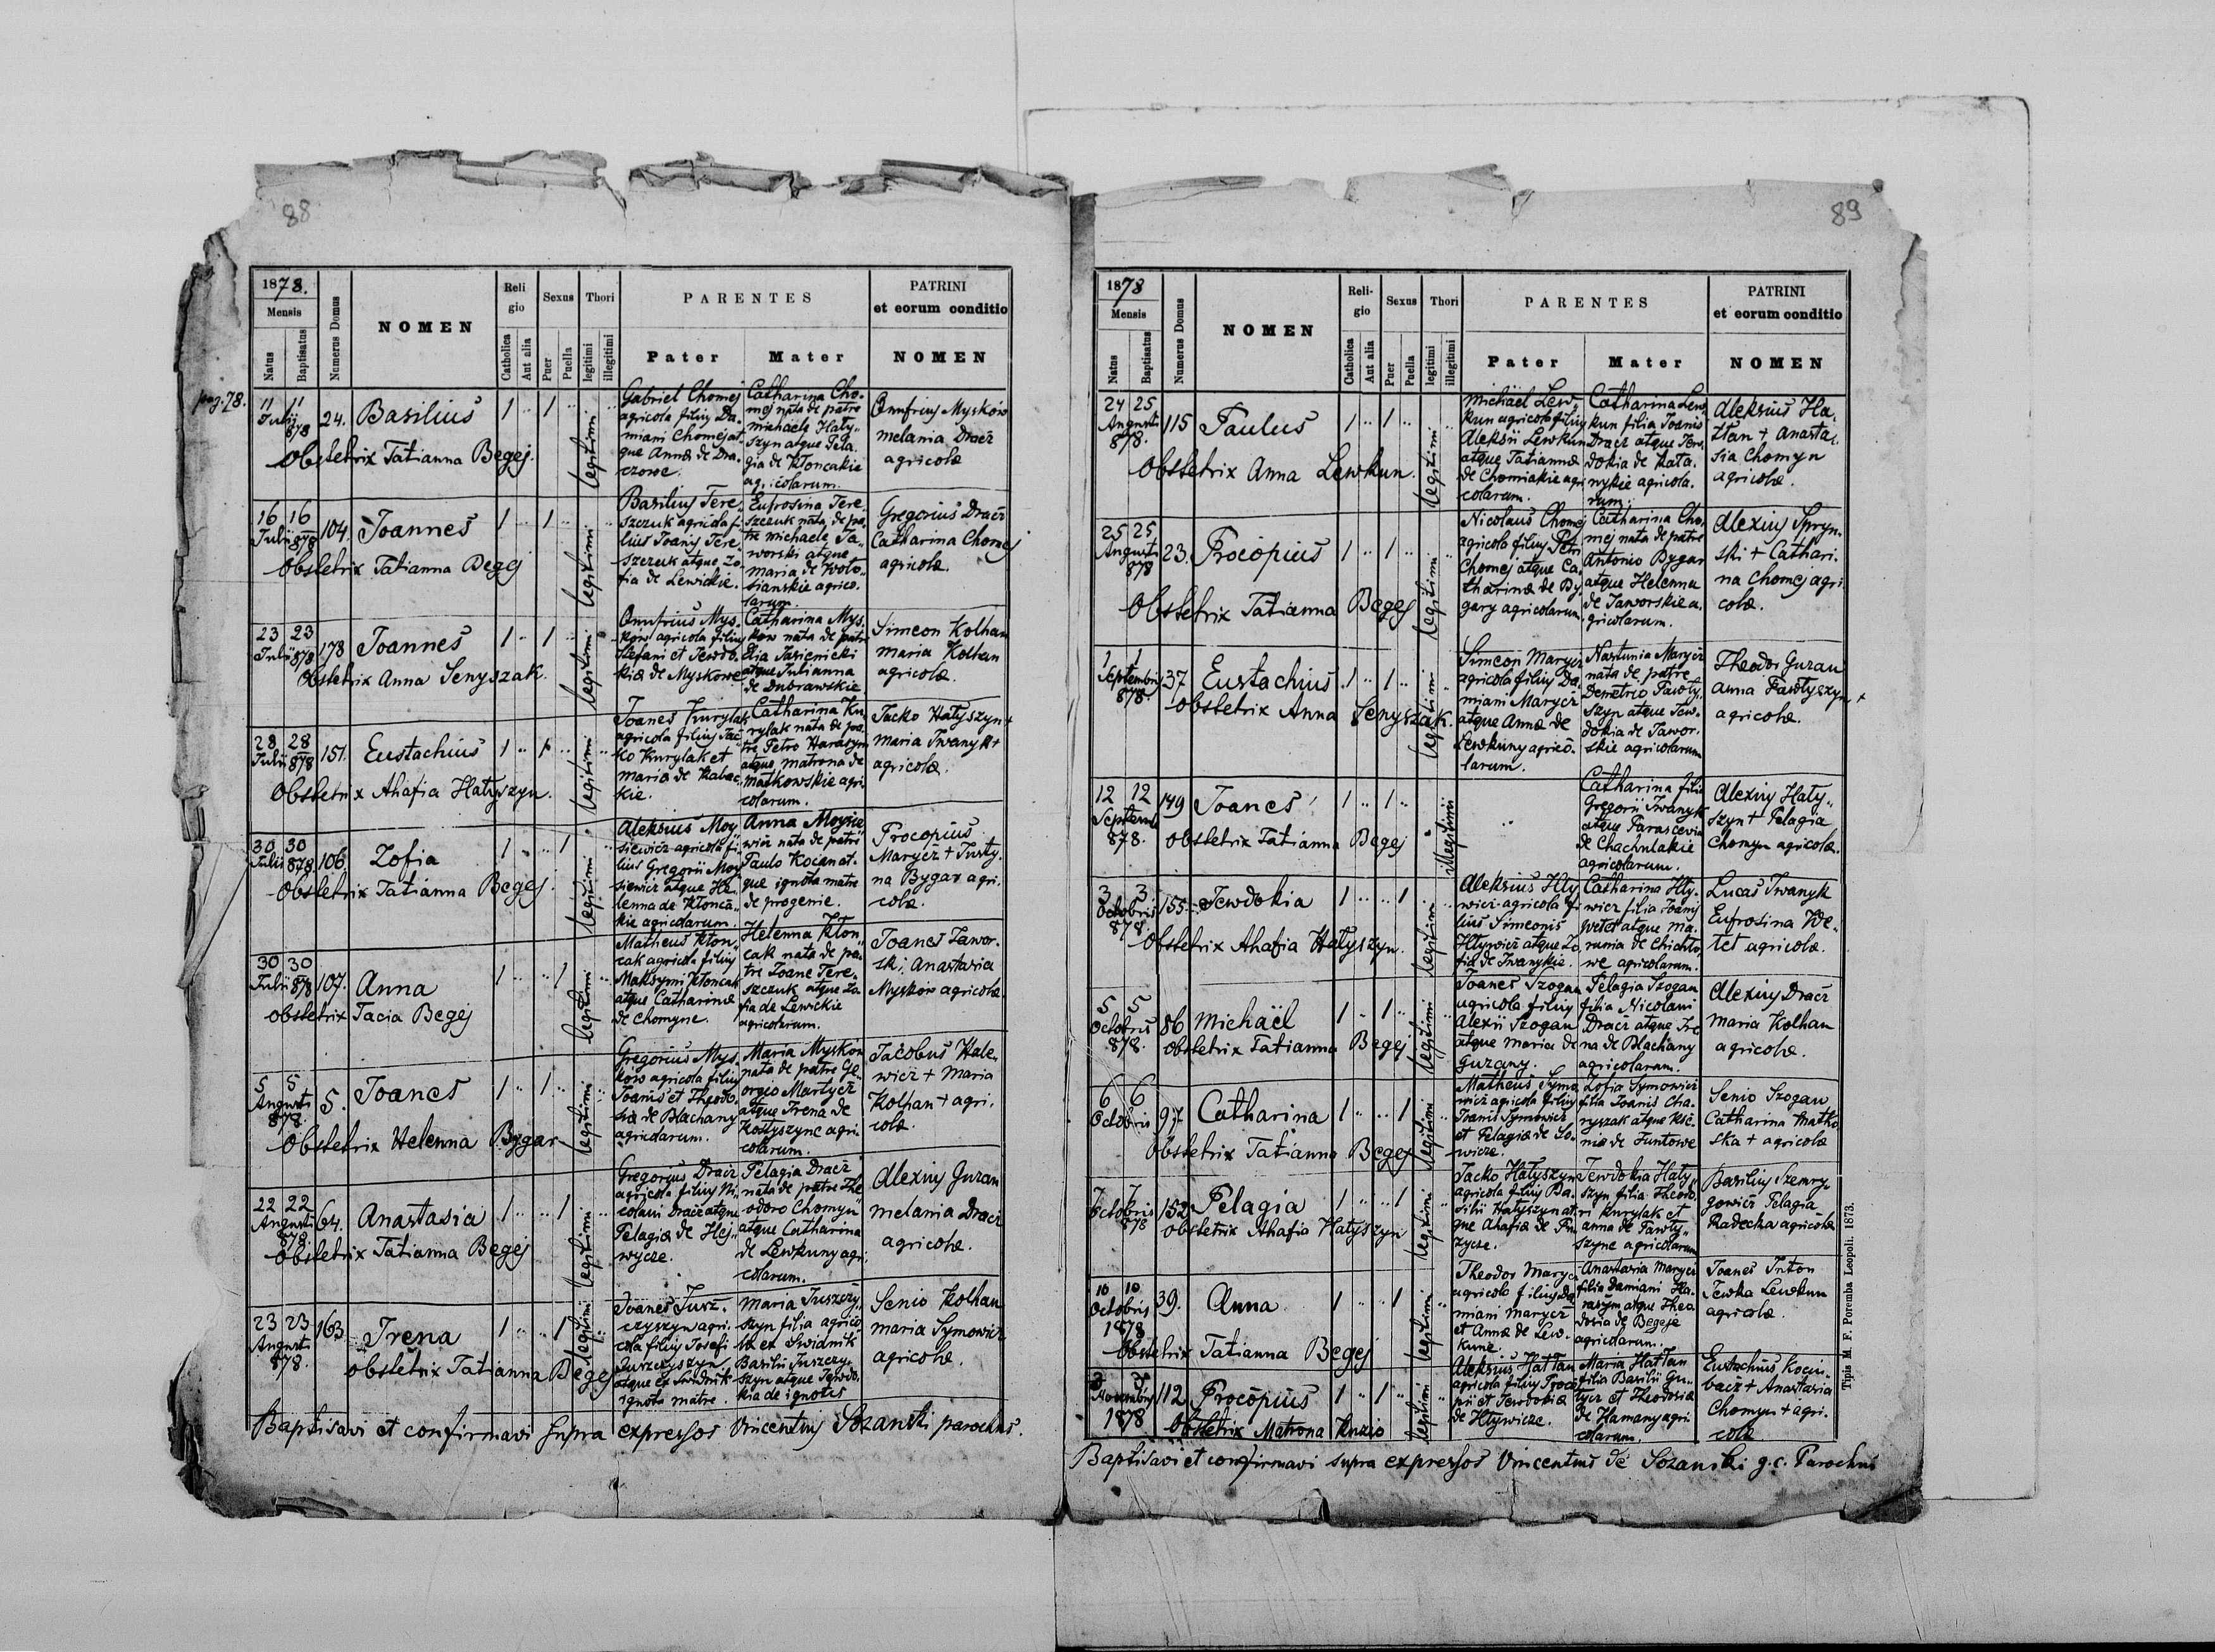 88
pag. 78.
1878.
Mensis
Natus
Baptisatus
Numerus Domus
NOMEN
Reli
gio
Catholica
Aut alia
Sexus
Puer
Puella
Thori
legitimi
illegitimi
PARENTES
Pater
Mater
PATRINI
et eorum conditio
NOMEN
11 11
Julij
878
24.
Basilius
1 .. 1 ..
legitimi
Obstetrix Tatianna Begej.
Gabriel Chomej
agricola filius Da-
miani Chomej at-
que Annæ de Dra-
czowe.
Catharina Cho-
mej nata de patre
Michaele Haty-
szyn atque Pela-
gia de Kłoncakie
agricolarum.
Onufrius Mysków
Melania Dracz
agricolæ
16 16
Julij
878
104.
Joannes
1 .. 1 ..
legitimi
Obstetrix Tatianna Begej
Basilius Tere-
szczuk agricola fi-
lius Joanis Tere-
szczuk atque Zo-
fia de Lewickie.
Eufrosina Tere-
szczuk nata de pa-
tre Michaele Ja-
worski atque
Maria de Woło-
sianskie agrico-
larum.
Gregorius Dracz
Catharina Chomej
agricolæ.
23 23
Julij
878
173
Joannes
1 .. 1 ..
legitimi
Obstetrix Anna Senyszak.
Onufrius Mys-
ków agricola filius
Stefani et Jewdo-
kiæ de Myskowe
Catharina Mys-
ków nata de patre
Elia Jasienicki
atque Julianna
de Dubrawskie
Simeon Kolhan
Maria Kolhan
agricolæ.
28 28
Julij
878
151.
Eustachius
1 .. 1 ..
legitimi
Obstetrix Ahafia Hatyszyn.
Joanes Kurylak
agricola filius Jac-
ko Kurylak et
Mariæ de Kabac-
kie.
Catharina Ku-
rylak nata de pa-
tre Petro Harasym
atque Matrona de
Matkowskie agri-
colarum.
Jacko Hatyszyn +
Maria Iwanyk +
agricolæ.
30 30
Julij
878.
106.
Zofia
1 .. .. 1
legitimi
Obstetrix Tatianna Begej.
Aleksius Moy-
siewicz agricola fi-
lius Gregorii Moy-
siewicz atque He-
lenna de Kłonca-
kie agricolarum.
Anna Moysie-
wicz nata de patre
Paulo Kocan at-
que ignota matre
de progenie.
Procopius
Marycz + Justy-
na Bygar agri-
colæ.
30 30
Julij
878
107.
Anna
1 .. .. 1
legitimi
Obstetrix Tacia Begej
Matheus Kłon-
cak agricola filius
Maksymi Kłoncak
atque Catharinæ
de Chomyne.
Helenna Kłon-
cak nata de pa-
tre Joane Tere-
szczuk atque Zo-
fia de Lewickie
agricolarum.
Joanes Jawor-
ski, Anastasia
Mysków agricolæ
5 5
Augusti
878.
5.
Joanes
1 .. 1 ..
legitimi
Obstetrix Helenna Bygar
Gregorius Mys-
ków agricola filius
Joanis et Theodo-
sia de Blachany
agricolarum.
Maria Myskow
nata de patre Ge-
orgio Martycz
atque Irena de
Kostyszyne agri-
colarum.
Jacobus Hale-
wicz + Maria
Kolhan + agri-
colæ.
22 22
Augusti
878.
64.
Anastasia
1 .. .. 1
legitimi
Obstetrix Tatianna Begej
Gregorius Dracz
agricola filius Ni-
colaui Dracz atque
Pelagiæ de Hej-
wycze.
Pelagia Dracz
nata de patre The-
odoro Chomyn
atque Catharina
de Lewkuny agri-
colarum.
Alexius Guran
Melania Dracz
agricolæ.
23 23
Augusti
878.
163.
Irena
1 .. .. 1
legitimi
Obstetrix Tatianna Begej
Joanes Jusz-
czyszyn agri-
cola filius Josefi
Juszczyszyn
atque ex Swidnik
ignota matre.
Maria Juszczy-
szyn filia agrico-
læ ex Swidnik
Basilii Juszczy-
szyn atque Jewdo-
kia de ignotis
Senio Kolhan
Maria Symowicz
agricolæ.
Baptisavi et confirmavi supra expressos Vincentius Sozanski parochus.
89
1878
Mensis
Natus
Baptisatus
Numerus Domus
NOMEN
Reli-
gio
Catholica
Aut alia
Sexus
Puer
Puella
Thori
legitimi
illegitimi
PARENTES
Pater
Mater
PATRINI
et eorum conditio
NOMEN
24 25
Augusti
878.
115
Paulus
1 .. 1 ..
legitimi
Obstetrix Anna Lewkun.
Michaël Lew-
kun agricola filius
Aleksii Lewkun
atque Tatiannæ
de Chomiakie agri
colarum.
Catharina Lew-
kun filia Joanis
Dracz atque Jew-
dokia de Kata-
nykie agricola-
rum.
Aleksius Ha-
tłan + Anasta-
sia Chomyn
agricolæ.
25 25
Augusti
878
23.
Procopius
1 .. 1 ..
legitimi
Obstetrix Tatianna Begej
Nicolaus Chomej
agricola filius Petri
Chomej atque Ca-
tharinæ de By-
gary agricolarum
Catharina Cho-
mej nata de patre
Antonio Bygar
atque Helenna
de Jaworskie a-
gricolarum.
Alexius Spryn-
ski + Cathari-
na Chomej agri-
colæ.
1 1
Septembris
878.
37
Eustachius
1 .. 1 ..
legitimi
Obstetrix Anna Senyszak.
Simeon Marycz
agricola filius Da-
miani Marycz
atque Annæ de
Lewkuny agrico-
larum.
Nastunia Marycz
nata de patre
Demetrio Pawły-
szyn atque Jew-
dokia de Jawor-
skie agricolarum
Theodor Guran
Anna Pawłyszyn +
agricolæ.
12 12
Septemb
878.
149
Joanes
1 .. 1 ..
illegitimi
Obstetrix Tatianna Begej
..
Catharina filia
Gregorii Iwanyk
atque Parascevia
de Chachulakie
agricolarum.
Alexius Haty-
szyn + Pelagia
Chomyn agricolæ.
3 3
Octobris
878.
155.
Jewdokia
1 .. .. 1
legitimi
Obstetrix Ahafia Hatyszyn.
Aleksius Hły-
wicz agricola fi-
lius Simeonis
Hływicz atque Zo-
fiæ de Iwanykie.
Catharina Hły-
wicz filia Joanis
Wetet atque Ma-
runia de Chichło-
we agricolarum.
Lucas Iwanyk
Eufrosina We-
tet agricolæ.
5 5
Octobris
878.
86
Michaël
1 .. 1 ..
legitimi
Obstetrix Tatianna Begej
Joanes Szogan
agricola filius
Alexii Szogan
atque Maria de
Gurany.
Pelagia Szogan
filia Nicolaui
Dracz atque Ire-
na de Blachany
agricolarum.
Alexius Dracz
Maria Kolhan
agricolæ.
6 6
Octobris
97.
Catharina
1 .. .. 1
legitimi
Obstetrix Tatianna Begej
Matheus Symo-
wicz agricola filius
Joanis Symowicz
et Pelagiæ de So-
wicze.
Zofia Symowicz
filia Joanis Cha-
ryszak atque Kse-
nia de Funtowe
Senio Szogan
Catharina Matko-
ska + agricolæ
7 7
Octobris
878
152
Pelagia
1 .. .. 1
legitimi
Obstetrix Ahafia Hatyszyn
Jacko Hatyszyn
agricola filius Ba-
silii Hatyszyn at-
que Ahafiæ de Fu-
zycze.
Jewdokia Haty-
szyn filia Theodo-
ri Kurylak et
Anna de Pawły-
szyne agricolarum
Basilius Szemry-
gowicz Pelagia
Radecka agricolæ
10 10
Octobris
1878
39.
Anna
1 .. .. 1
legitimi
Obstetrix Tatianna Begej
Theodor Marycz
agricola filius Da-
miani Marycz
et Annæ de Lew-
kune.
Anastasia Marycz
filia Damiani Ha-
rasym atque Theo-
dosia de Begeje
agricolarum.
Joanes Inton
Jewka Lewkun
agricolæ.
3 3
Novembris
1878
112.
Procopius
1 .. 1 ..
legitimi
Obstetrix Matrona Kuzio
Aleksius Hatłan
agricola filius Proco-
pii et Jewdokiæ
de Hływicze.
Maria Hatłan
filia Basilii Gu-
tycz et Theodosia
de Hamany agri-
colarum.
Eustachius Kociu-
bacz + Anastasia
Chomyn + agri-
colæ
Baptisavi et confirmavi supra expressos Vincentius de Sozanski g. c. Parochus
Tipis M. F. Poremba Leopoli. 1873.